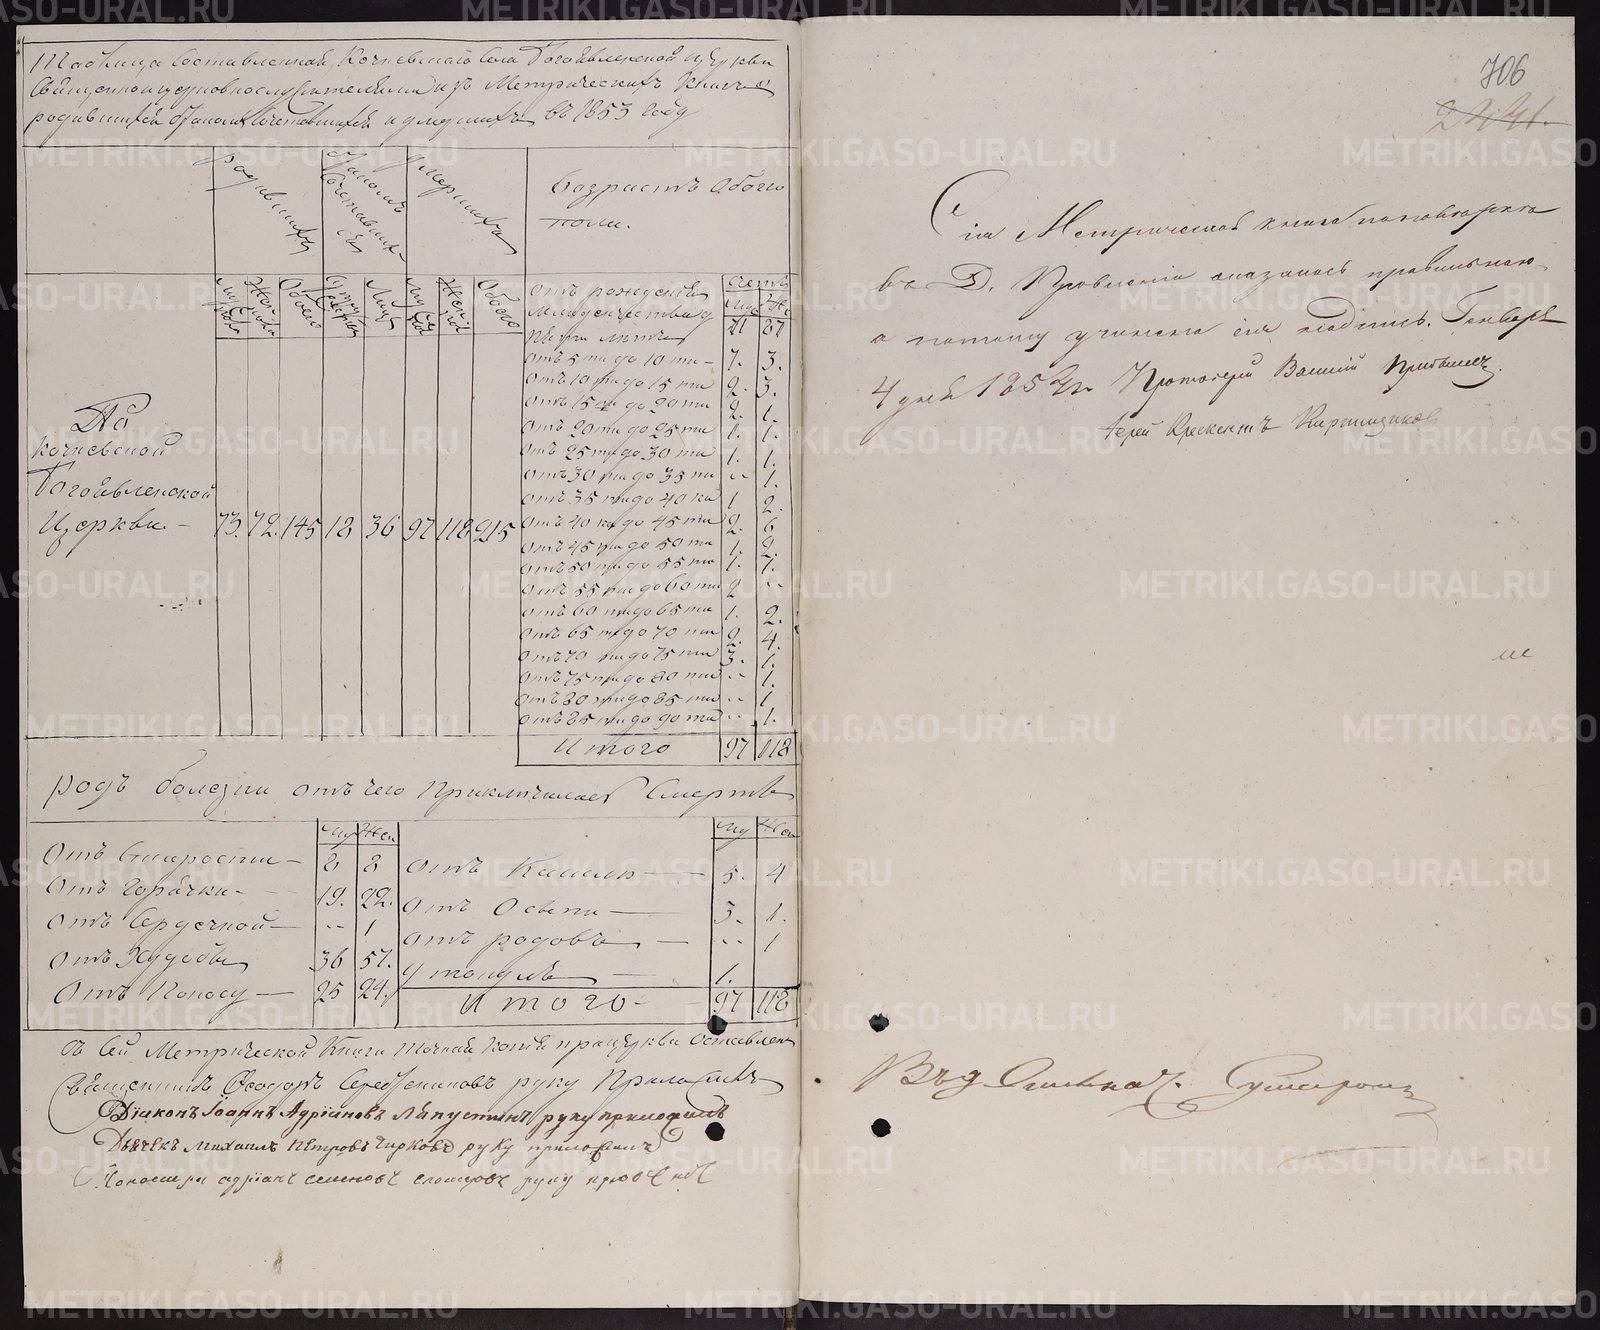 Таблица Составленная, Кочневскаго Села Богоявленской церкви
Священноцерковнослужителями изъ Метрическихъ Книгъ о
родившихся бракомъ сочетавшихся и умершихъ въ 1853 Году
родившихся
бракомъ сочетавшихся
умершихъ
возрастъ обоего
пола.
Мужеска
Женска
Обоего
Лицъ
Муж
Жен
Обоего
Отъ рожденства
Младенчества до
пяти летъ
Счетъ
Муж Же
71 87
Отъ 5 ти до 10 ти – 7. 3.
Отъ 10 ти до 15 ти 2. 3.
Отъ 15 ти до 20 ти 2. 1.
Отъ 20 ти до 25 ти 1. 1.
Отъ 25 ти до 30 ти 1. 1.
Отъ 30 ти до 35 ти -- 1.
Отъ 35 ти до 40 ка 1 2.
Отъ 40 ка до 45 ти 2. 6
Отъ 45 ти до 50 ти 1. 2.
Отъ 50 ти до 55 ти 1. 7.
Отъ 55 ти до 60 ти 2 --
Отъ 60 ти до 65 ти 1. 2.
Отъ 65 ти до 70 ти 2. 4.
Отъ 70 ти до 75 ти 3. 1.
Отъ 75 ти до 80 ти -- 1.
Отъ 80 ти до 85 ти -- 1
Отъ 85 ти до 90 та -- 1.
Итого 97 118
Кочневской
Богоявленской
Церкви – 73. 72. 145 18 36 97 118 215
родъ болезни отъ чего Приключилась Смерть
Му Жен
Отъ Старости – 8 8
Отъ Горячки – 19. 22.
Отъ Сердечной – -- 1
Отъ Худобы 36 57.
Отъ Поносу – 25 24.
Му Жен
Отъ Кашлю 5. 4
Отъ Оспы 3. 1.
Отъ родовъ -- 1
утонулъ 1.
Итого – 97 118
Съ Сей Метрической Книги точная копія при церкви Оставлена
Священникъ Феодоръ Серебениковъ руку Приложилъ
Діаконъ Іоаннъ Адріановъ Ляпустинъ руку приложилъ
Дьячекъ Михаилъ Петровъ Чирковъ руку приложилъ
Пономарь Адріанъ Семеновъ руку
706
2441.
Сія Метрическая книга по поверке
въ Д. Правленіи оказалась правильною
а потому учинена сія подпись. Генваря
4 дня 185 г. Протоіерей Василій
Іерей Крескентъ Киртищиковъ
METRIKI.GASO-URAL.RU